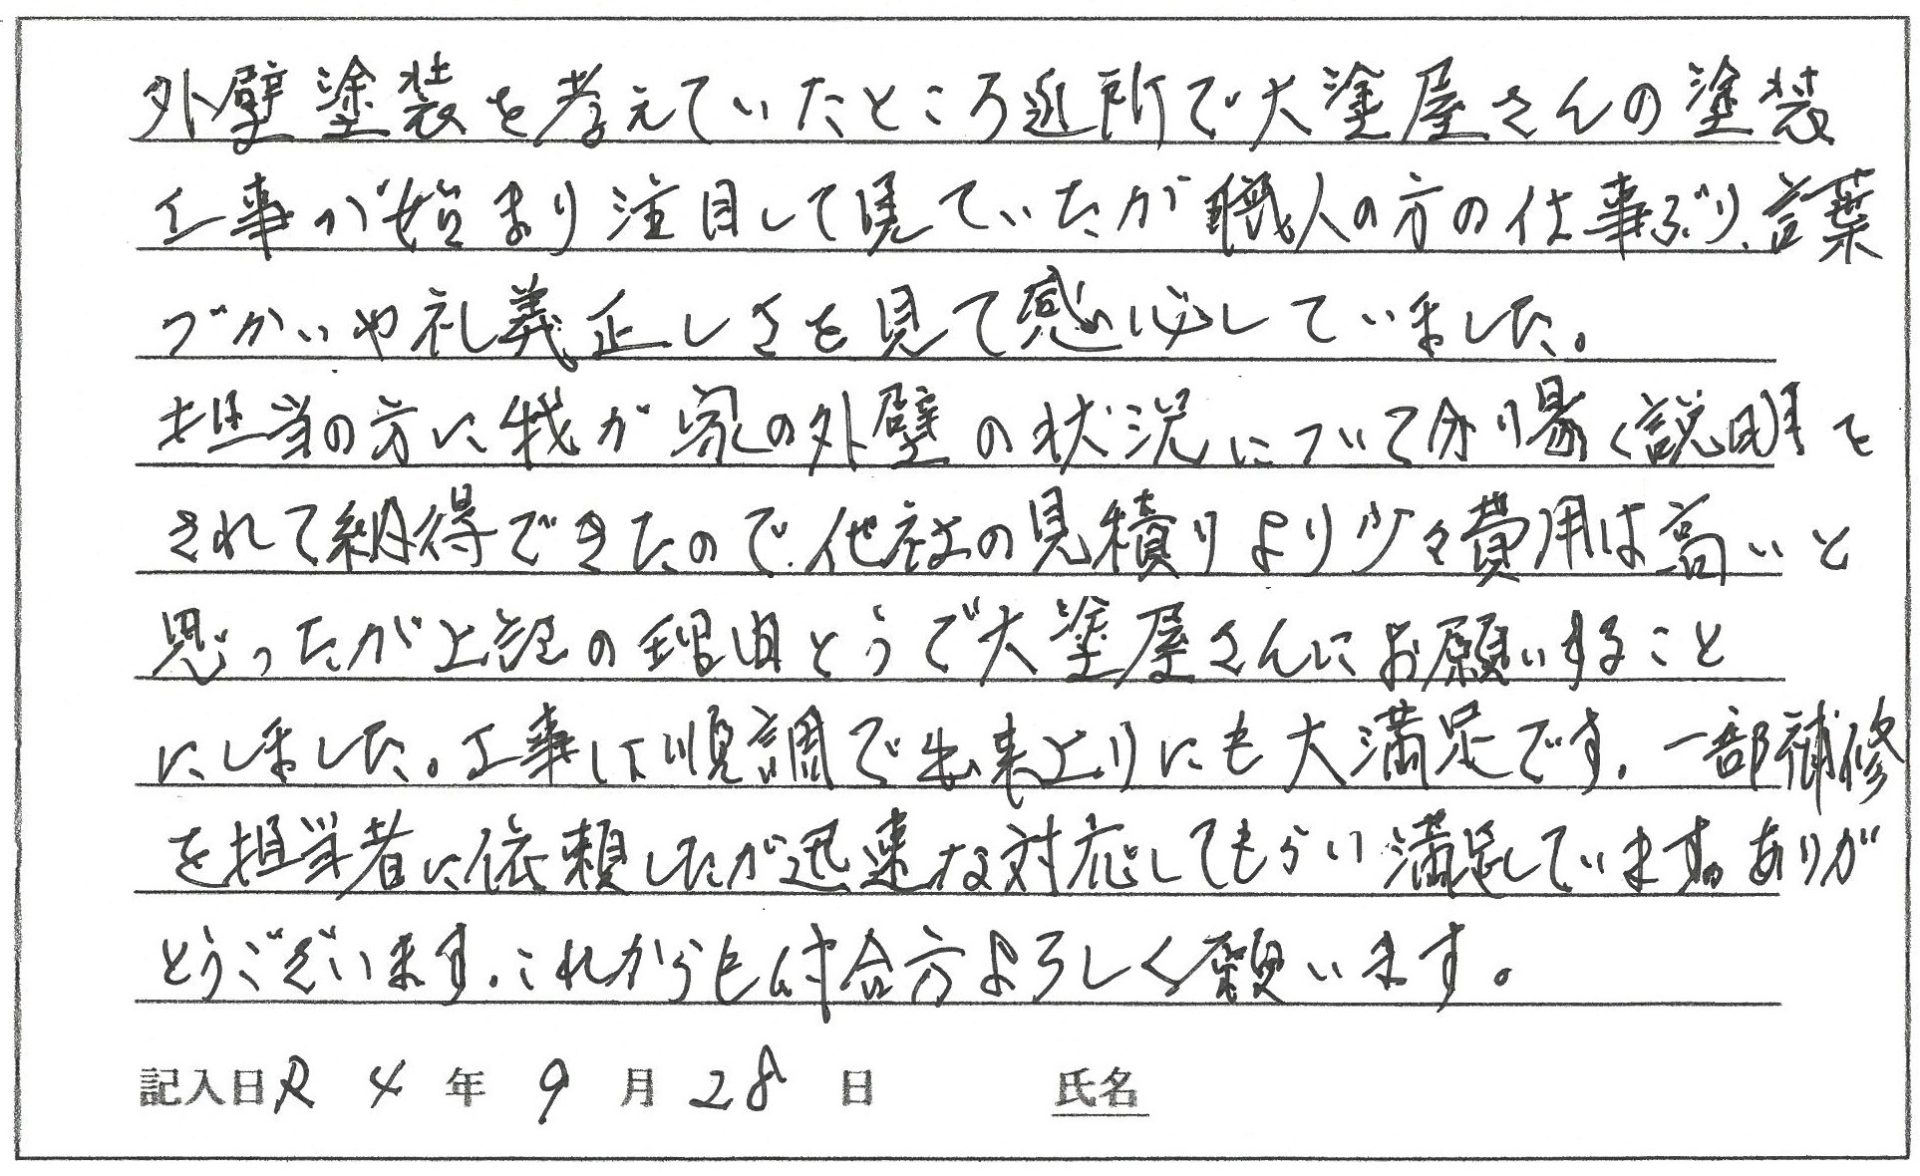 外壁塗装を考えていたところ近所で大塗屋さんの塗装
工事が始まり注目して見ていたが職人の方の仕事ぶり、言葉
づかいや礼義正しさを見て感心していました。
担当の方に我が家の外壁の状況について分り易く説明を
されて納得できたので、他社の見積りより少々費用は高いと
思ったが上記の理由とうで大塗屋さんにお願いすること
にしました。工事は順調で出来上りにも大満足です。一部補修
を担当者に依頼したが迅速な対応してもらい満足しています。ありが
とうございます。これからも付合方よろしく願います。
記入日 R 4 年 9 月 28 日 氏名